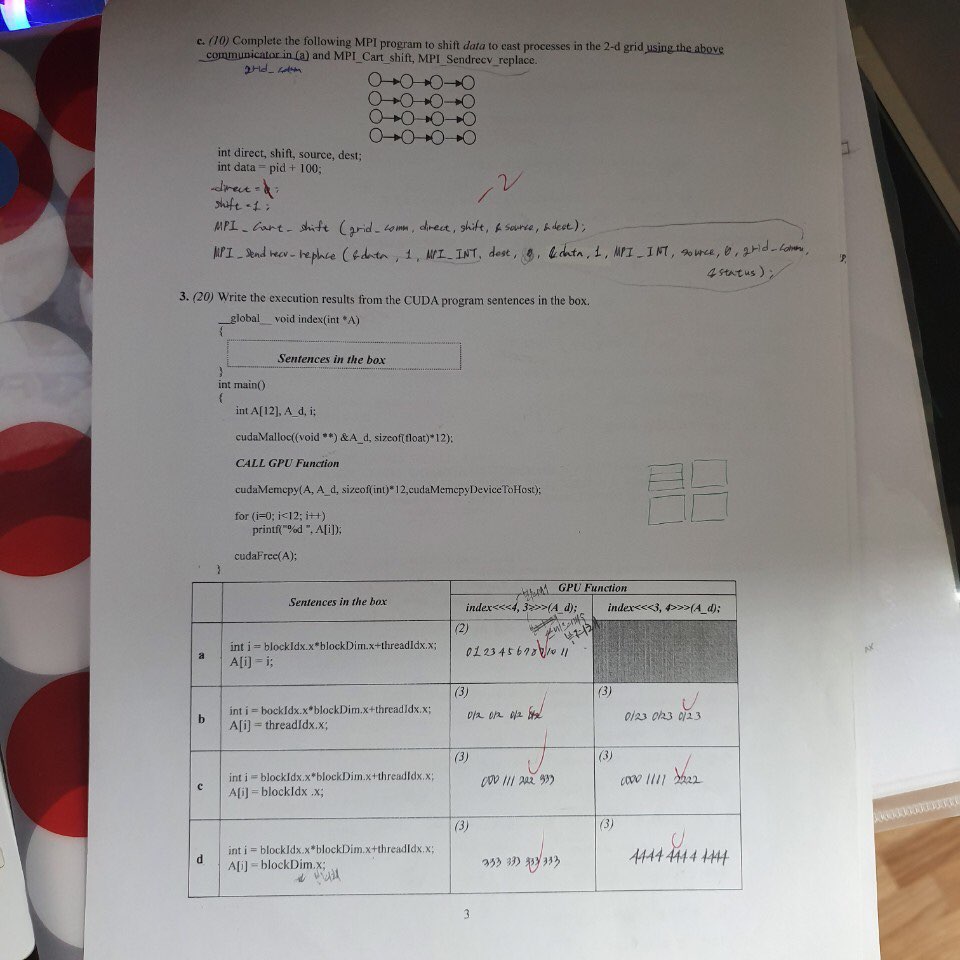 c. (10) Complete the following MPI program to shift data to east processes in the 2-d grid using the above
communicator in (a) and MPI_Cart_shift, MPI_Sendrecv_replace.
grid_comm
int direct, shift, source, dest;
int data = pid + 100;
direct = ;
shift = 1;
-2
MPI_Cart_shift (grid_comm, direct, shift, &source, &dest);
MPI_Sendrecv_replace (&data, 1, MPI_INT, dest, 0, &data, 1, MPI_INT, source, 0, grid_comm,
&status);
3. (20) Write the execution results from the CUDA program sentences in the box.
__global__ void index(int *A)
{
Sentences in the box
}
int main()
{
int A[12], A_d, i;
cudaMalloc((void **) &A_d, sizeof(float)*12);
CALL GPU Function
cudaMemcpy(A, A_d, sizeof(int)*12,cudaMemcpyDeviceToHost);
for (i=0; i<12; i++)
printf("%d ", A[i]);
cudaFree(A);
}
Sentences in the box
GPU Function
index<<<4, 3>>>(A_d);
index<<<3, 4>>>(A_d);
a
int i = blockIdx.x*blockDim.x+threadIdx.x;
A[i] = i;
(2)
0 1 2 3 4 5 6 7 8 9 10 11
b
int i = bockIdx.x*blockDim.x+threadIdx.x;
A[i] = threadIdx.x;
(3)
012 012 012 012
(3)
0123 0123 0123
c
int i = blockIdx.x*blockDim.x+threadIdx.x;
A[i] = blockIdx .x;
(3)
000 111 222 333
(3)
0000 1111 2222
d
int i = blockIdx.x*blockDim.x+threadIdx.x;
A[i] = blockDim.x;
(3)
333 333 333 333
(3)
4444 4444 4444
3